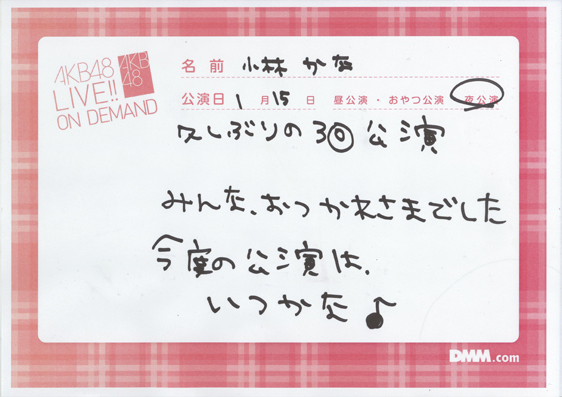 AKB48
LIVE!!
ON DEMAND
AKB
48
名前 小林 かな
公演日 1月15日 昼公演・おやつ公演・夜公演
久しぶりの3回公演
みんな、おつかれさまでした
今度の公演は、
いつかな♪
DMM.com